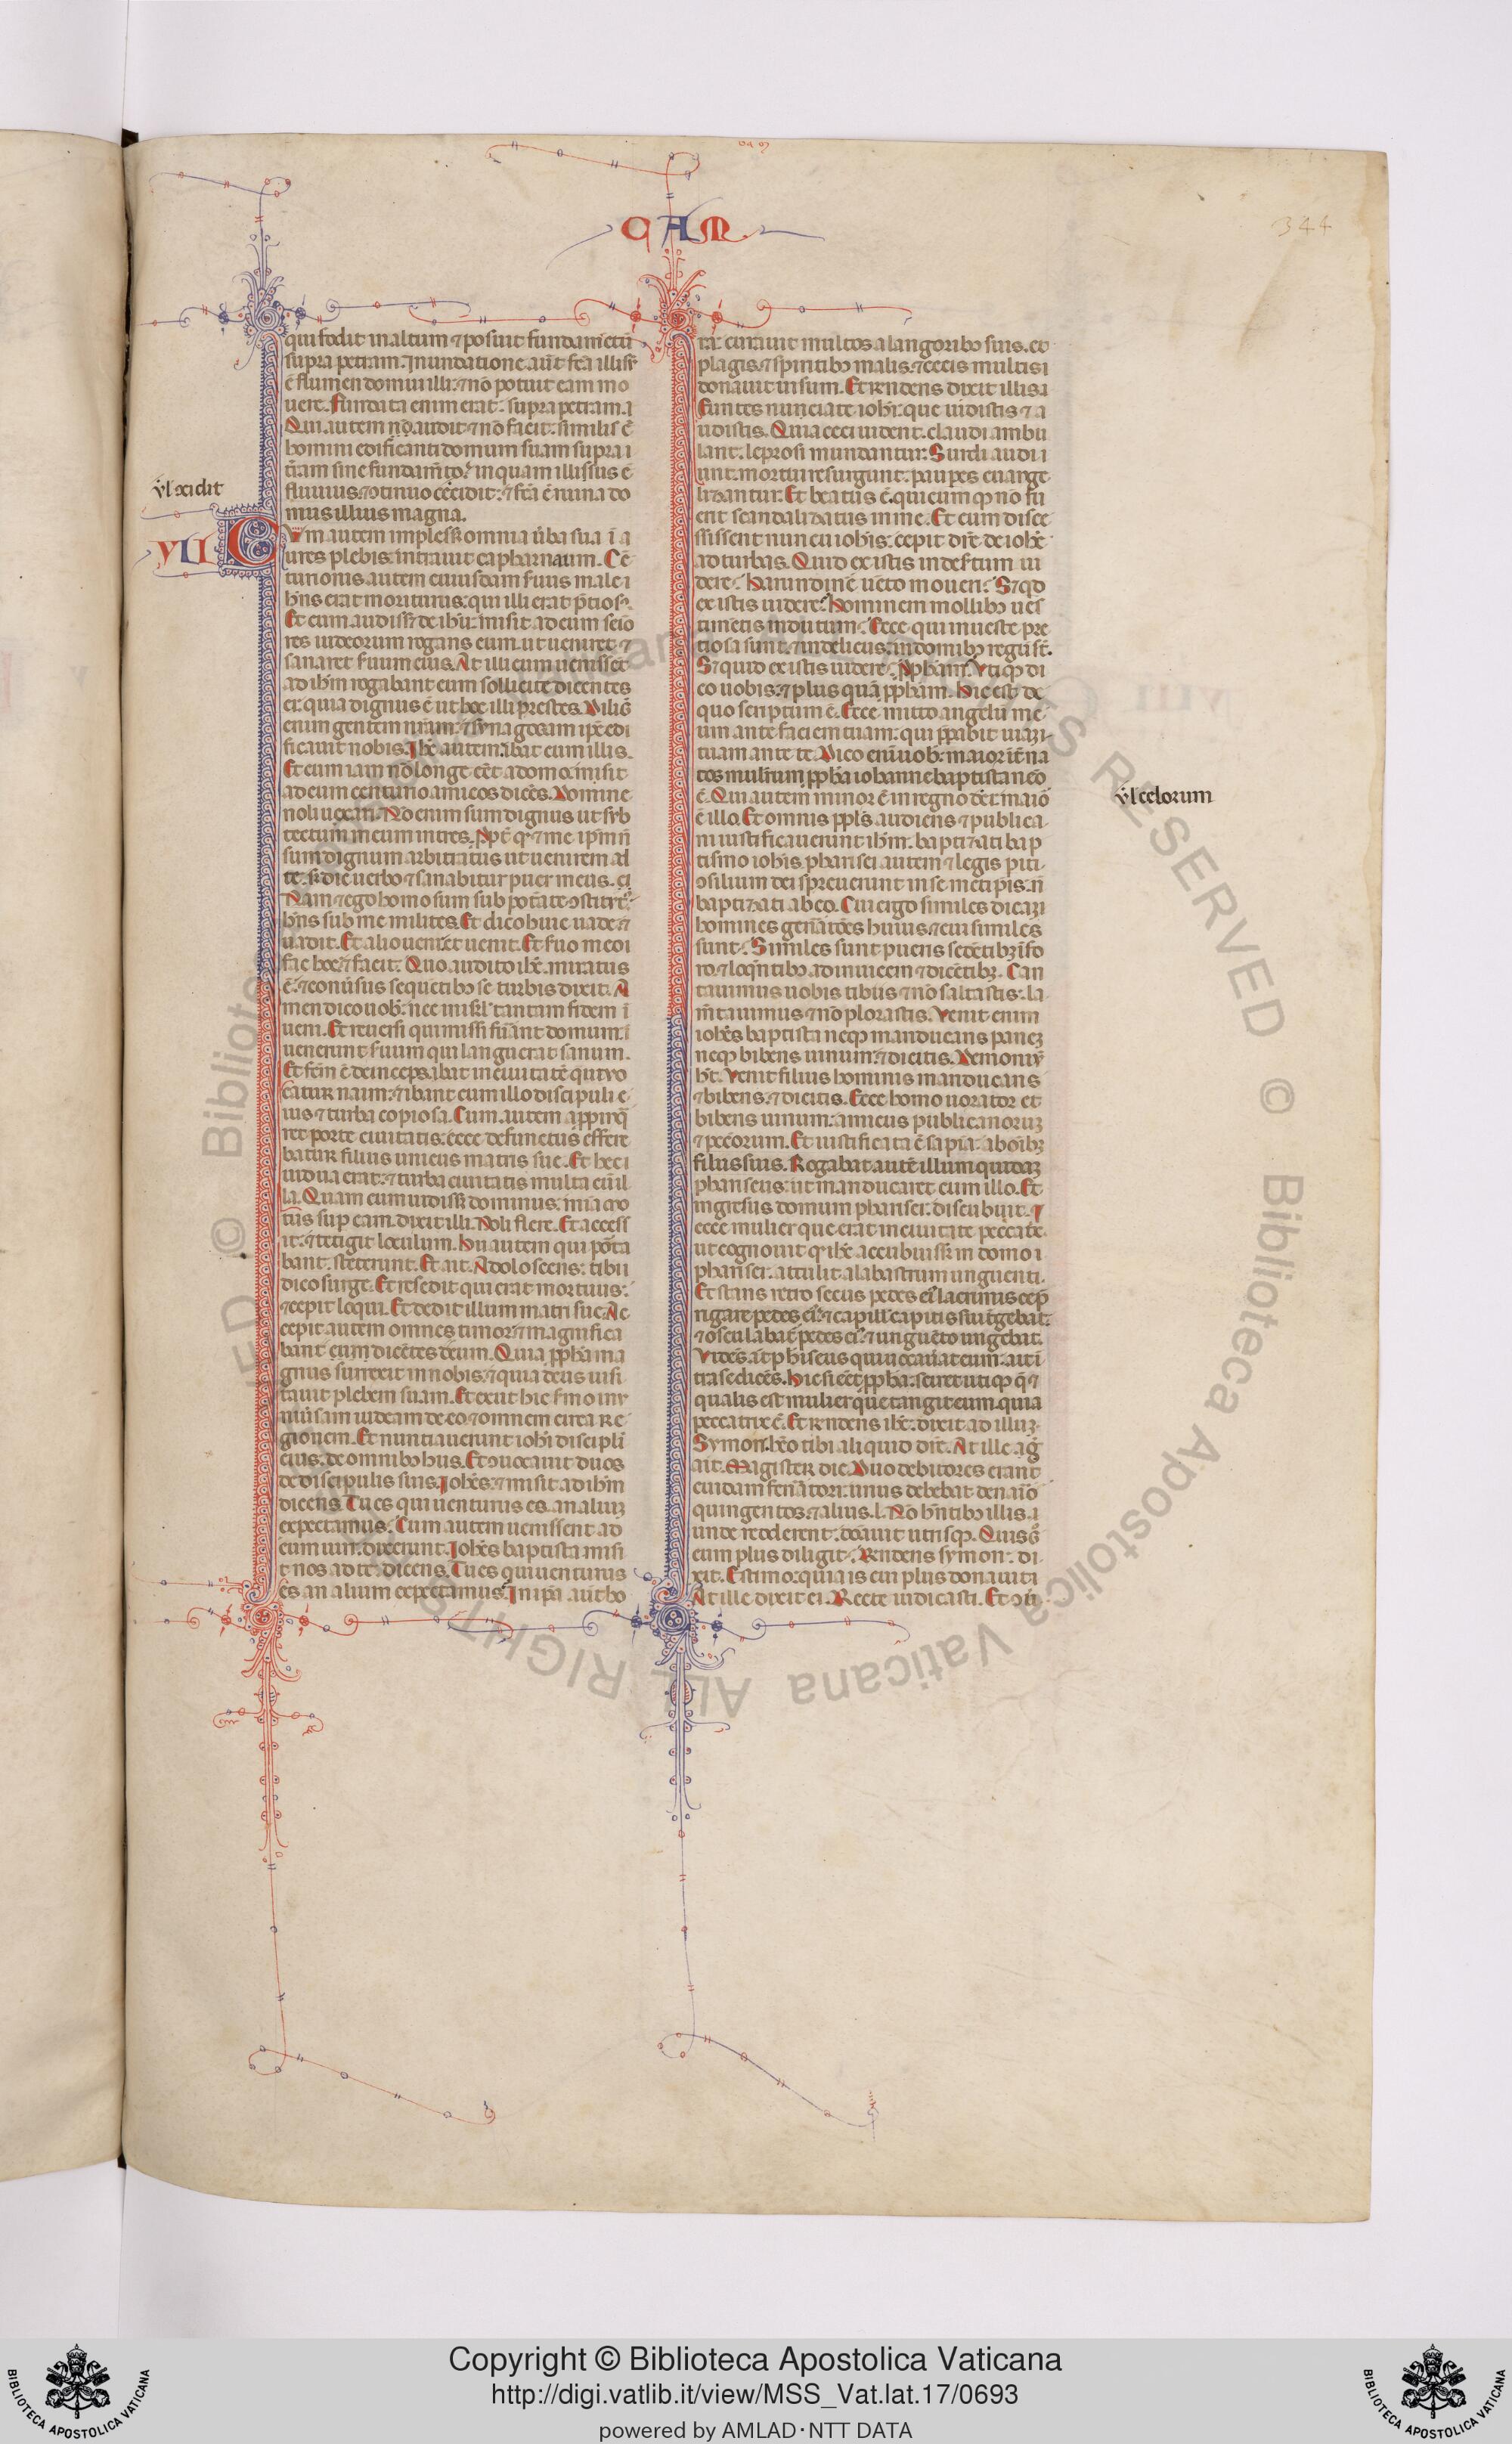 CAM
344
qui fodit in altum ⁊ posuit fundam̄ctū
supra petram. Inundatione aūt fc̄a illisū
ē flumen domui illi: ⁊ nō potuit eam mo
uere. Fundata enim erat: supra petram.
Qui autem nō audit ⁊ nō facit: similis ē
homini edificanti domum suam supra
t̄ram sine fundam̄to: in quam illissus ē
fluuius ⁊ ↄtinuo cecidit: ⁊ fc̄a ē ruina do
mus illius magna.
ul̄ ↄcidit
VII
Cum autem implesset omnia ūba sua ī a
ures plebis: intrauit capharnaum. Cē
turionis autem cuiusdam ſuus male
hn̄s erat moriturus: qui illi erat p̄tios⁹.
Et cum audiss; de ihū: misit ad eum seīo
res iudeorum rogans eum ut ueniret ⁊
sanaret ſuum eius. At illi cum uenissēt
ad ihm̄ rogabant eum sollicite dicentes
ei: quia dignus ē ut hoc illi prestes. Diligē
enim gentem nr̄am: ⁊ synagogam ip̄e edi
ficauit nobis. Ihc̄ autem ibat cum illis.
Et cum iam nō longe eēt a domo: misit
ad eum centurio amicos dicēs. Domine
noli uexari. Nō enim sum dignus ut sub
tectum meum intres. Ppt̄ qd̄ ⁊ me ip̄m nō
sum dignum arbitratus ut uenirem ad
te. sȝ dic uerbo ⁊ sanabitur puer meus.
Nam ⁊ ego homo sum sub potate ↄstitut⁹:
hn̄s sub me milites. Et dico huic uade: ⁊
uadit. Et alio ueni: et uenit. Et ſuo meo
fac hoc: ⁊ facit. Quo audito ihc̄ miratus
ē: ⁊ conūsus sequētibȝ se turbis dixit. A
men dico uob̄: nec in isrl̄ tantam fidem ī
ueni. Et reuersi qui missi fūant domum:
uenerunt ſuum qui languerat sanum.
Et fc̄m ē deinceps ibat in ciuitatē q̄ uo
catur naim: ⁊ ibant cum illo discipuli e
ius ⁊ turba copiosa. Cum autem appinq̄
ret porte ciuitatis: ecce defunctus effere
batur filius unicus matris sue. Et hec
uidua erat: ⁊ turba ciuitatis multa cū il
la. Quam cum uidissȝ dominus: mīa mo
tus sup eam. dixit illi. Noli flere. Et access
it: ⁊ tetigit loculum. Hii autem qui porta
bant. steterunt. Et ait. Adolescens: tibi
dico surge. Et resedit qui erat mortuus:
⁊ cepit loqui. Et dedit illum matri sue. Ac
cepit autem omnes timor: ⁊ magnifica
bant eum dicētes deum. Quia ppha ma
gnus surrexit in nobis: ⁊ quia deus uisi
tauit plebem suam. Et exiit hic sermo in
uniūsam iudeam de eo: ⁊ omnem circa re
gionem. Et nuntiauerunt iohi discipli
eius: de omnibȝ his. Et ↄuocauit duos
de discipulis suis. Iohēs: ⁊ misit ad ihm̄
dicens. Tu es qui uenturus es. an aliuȝ
expectamus. Cum autem uenissent ad
eum uiri: dixerunt. Iohēs baptista misi
t nos ad te: dicens. Tu es qui uenturus
es an alium expectamus. In ipa aūt ho
ra: curauit multos a langoribȝ suis. et
plagis. ⁊ spiritibȝ malis. ⁊ cecis multis
donauit uisum. Et rn̄dens dixit illis.
Euntes nunciate iohi: que uidistis ⁊ a
udistis. Quia ceci uident. claudi ambu
lant. leprosi mundantur. Surdi audi
unt. mortui resurgunt. paupes euange
lizantur. Et beatus ē. quicumqȝ nō fu
erit scandalizatus in me. Et cum disce
ssissent nuncii iohis: cepit dīre de iohē
ad turbas. Quid existis in desertum ui
dere. Harundinē uēto moueri. Sȝ qd
existis uidere. Hominem mollibȝ ues
timētis indutum. Ecce qui in ueste pre
tiosa sunt. ⁊ in deliciis: in domibȝ regū sūt.
Sȝ quid existis uidere. Ppham. Vtiqȝ di
co uobis: ⁊ plus quā ppham. Hic est de
quo scriptum ē. Ecce mitto angelū me
um ante faciem tuam: qui pparabit uiaȝ
tuam ante te. Dico enī uob̄: maior int̄ na
tos mulierum ppha iohanne baptista nēo
ē. Qui autem minor ē in regno dei: maior
ē illo. Et omnis ppls̄ audiens ⁊ publica
ni iustificauerunt ihm̄: baptizati bap
tismo iohis. pharisei autem ⁊ legis piti
ↄsilium dei spreuerunt in semetipsis: nō
baptizati ab eo. Cui ergo similes dicaȝ
homines gen̄atōēs huius: ⁊ cui similes
sunt. Similes sunt pueris sedētibȝ ī fo
ro. ⁊ loqn̄tibȝ ad inuicem ⁊ dicētibȝ. Can
tauimus uobis tibiis ⁊ nō saltastis: la
m̄tauimus ⁊ nō plorastis. Venit enim
iohēs baptista neqȝ manducans paneȝ
neqȝ bibens uinum: ⁊ dicitis. Demoniū
ht̄. Venit filius hominis manducans
⁊ bibens. ⁊ dicitis. Ecce homo uorator et
bibens uinum: amicus publicanoruȝ
⁊ pecc̄orum. Et iustificata ē sapīa: ab oībȝ
filiis suis. Rogabat autē illum quidaȝ
phariseus: ut manducaret cum illo. Et
ingressus domum pharisei: discubuit.
ecce mulier que erat in ciuitate peccat̄x.
ut cognouit qd̄ ihc̄ accubuissȝ in domo
pharisei. attulit alabastrum unguenti.
Et stans retro secus pedes eī⁹ lacrimis cep̄
rigare pedes eī⁹ ⁊ capillis capitis sui t̄gebat.
⁊ osculabat̄ pedes eī⁹: ⁊ unguēto ungebat.
Vidēs aūt phiseus qui uocauat eum: ait ī
tra se dicēs. Hic si eēt ppha: sciret utiqȝ q̄ ⁊
qualis est mulier que tangit eum. quia
peccatrix ē. Et rn̄dens ihc̄. dixit ad illuȝ.
Symon. hēo tibi aliquid dīre. At ille
ait. Magister dic. Duo debitores erant
cuidam fen̄atori: unus debebat denarīo
quingentos. ⁊ alius. l. Nō hn̄tibȝ illis
unde redderent: donauit utrisqȝ. Quis ḡ
eum plus diligit. Rn̄dens symon: di
xit. Estimo: quia is cui plus donauit.
At ille dixit ei. Recte iudicasti. Et ↄū
ul̄ celorum
Copyright © Biblioteca Apostolica Vaticana
http://digi.vatlib.it/view/MSS_Vat.lat.17/0693
powered by AMLAD·NTT DATA
BIBLIOTECA APOSTOLICA VATICANA
BIBLIOTECA APOSTOLICA VATICANA